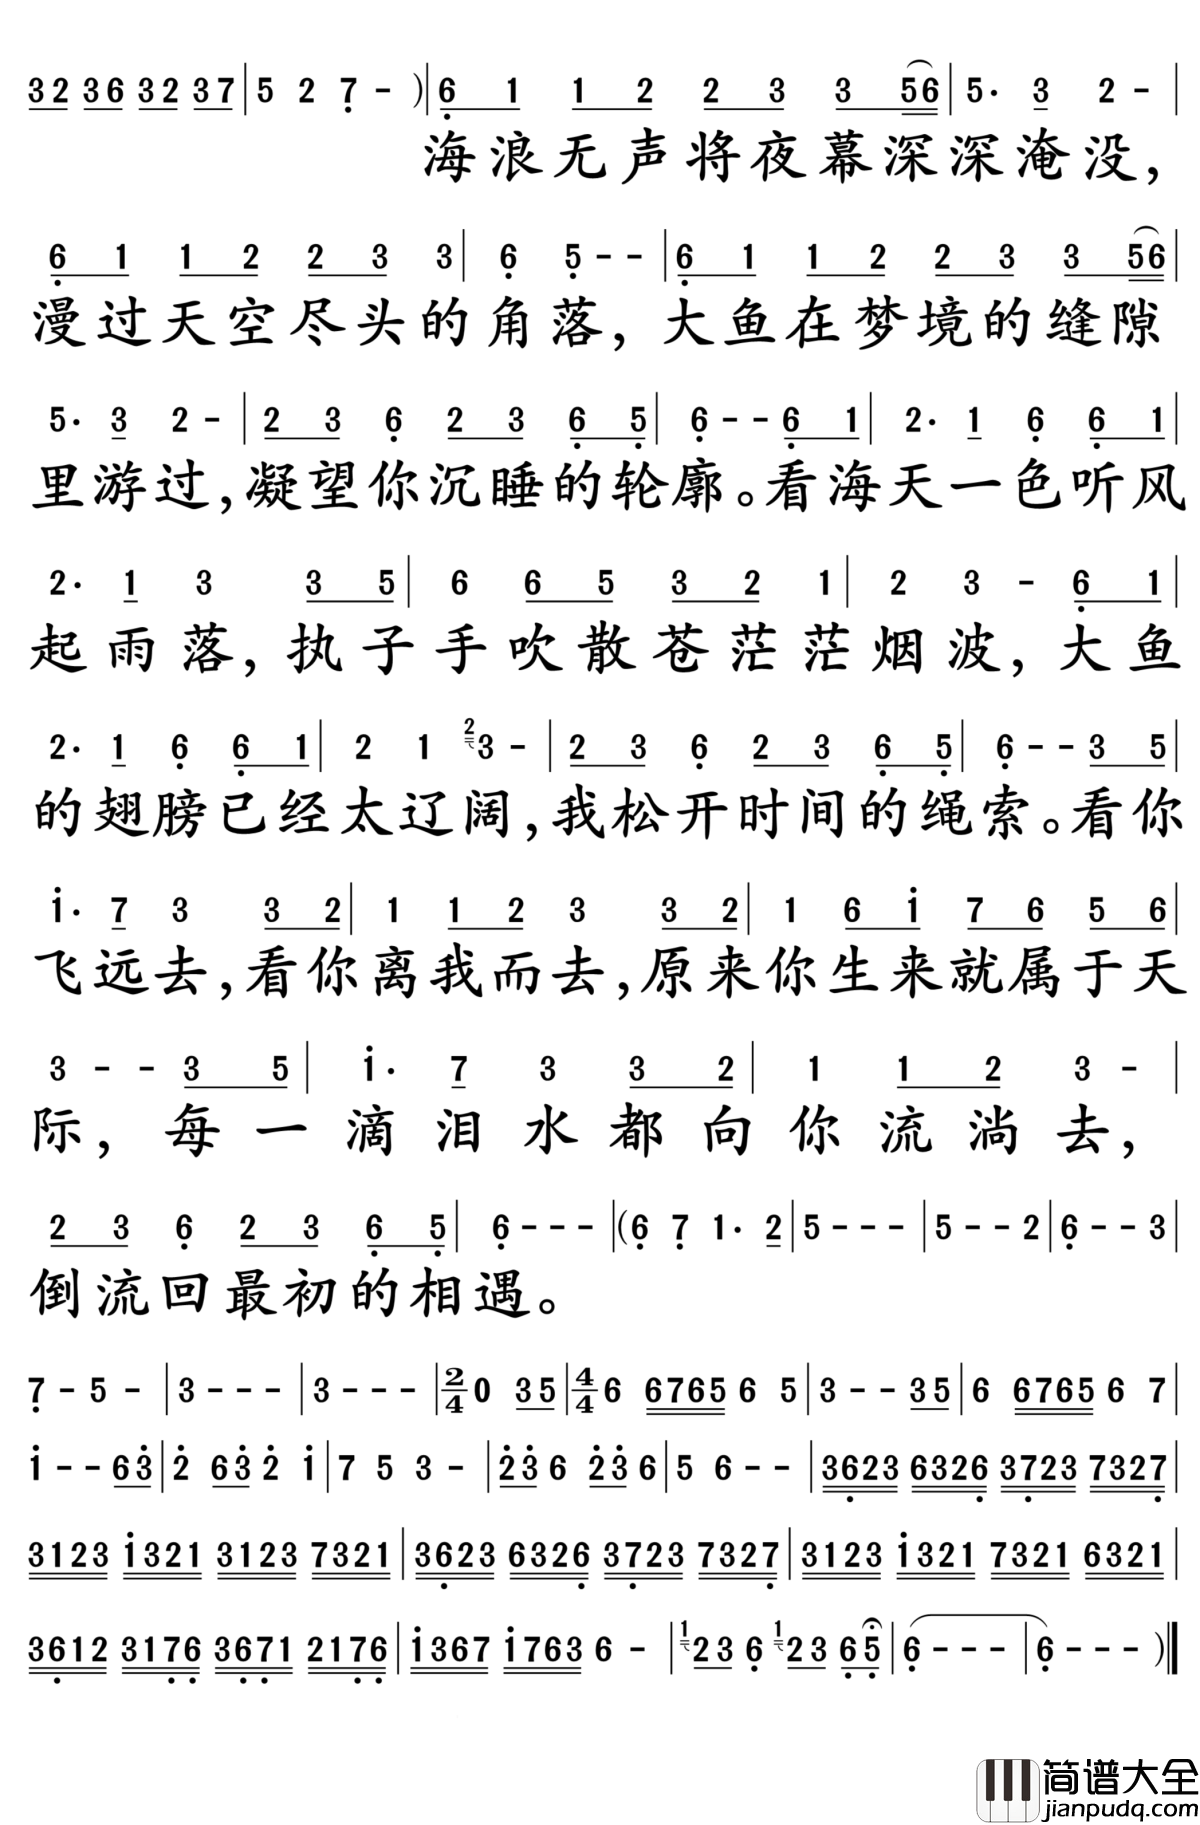 32 36 32 37 | 5 2 7 - ) | 6 1 1 2 2 3 3 56 | 5· 3 2 - |
海浪无声将夜幕深深淹没，
6 1 1 2 2 3 3 | 6 5 - - | 6 1 1 2 2 3 3 56 |
漫过天空尽头的角落，大鱼在梦境的缝隙
5· 3 2 - | 2 3 6 2 3 6 5 | 6 - - 6 1 | 2· 1 6 6 1 |
里游过，凝望你沉睡的轮廓。看海天一色听风
2· 1 3 3 5 | 6 6 5 3 2 1 | 2 3 - 6 1 |
起雨落，执子手吹散苍茫茫烟波，大鱼
2· 1 6 6 1 | 2 1 2 3 - | 2 3 6 2 3 6 5 | 6 - - 3 5 |
的翅膀已经太辽阔，我松开时间的绳索。看你
i· 7 3 3 2 | 1 1 2 3 3 2 | 1 6 i 7 6 5 6 |
飞远去，看你离我而去，原来你生来就属于天
3 - - 3 5 | i· 7 3 3 2 | 1 1 2 3 - |
际，每一滴泪水都向你流淌去，
2 3 6 2 3 6 5 | 6 - - - | ( 6 7 1· 2 | 5 - - - | 5 - - 2 | 6 - - 3 |
倒流回最初的相遇。
7 - 5 - | 3 - - - | 3 - - - | 2/4 0 35 | 4/4 6 6765 6 5 | 3 - - 35 | 6 6765 6 7 |
i - - 63 | 2 63 2 i | 7 5 3 - | 23 6 23 6 | 5 6 - - | 3623 6326 3723 7327 |
3123 i321 3123 7321 | 3623 6326 3723 7327 | 3123 i321 7321 6321 |
3612 3176 3671 2176 | i367 i763 6 - | 1 23 6 1 23 65 | 6 - - - | 6 - - - ) |
简谱大全
jianpudq.com